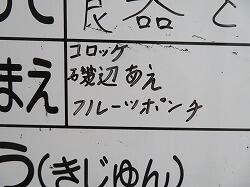 食器と
コロッケ
まえ
磯辺あえ
フルーツポンチ
う(きじゅん)